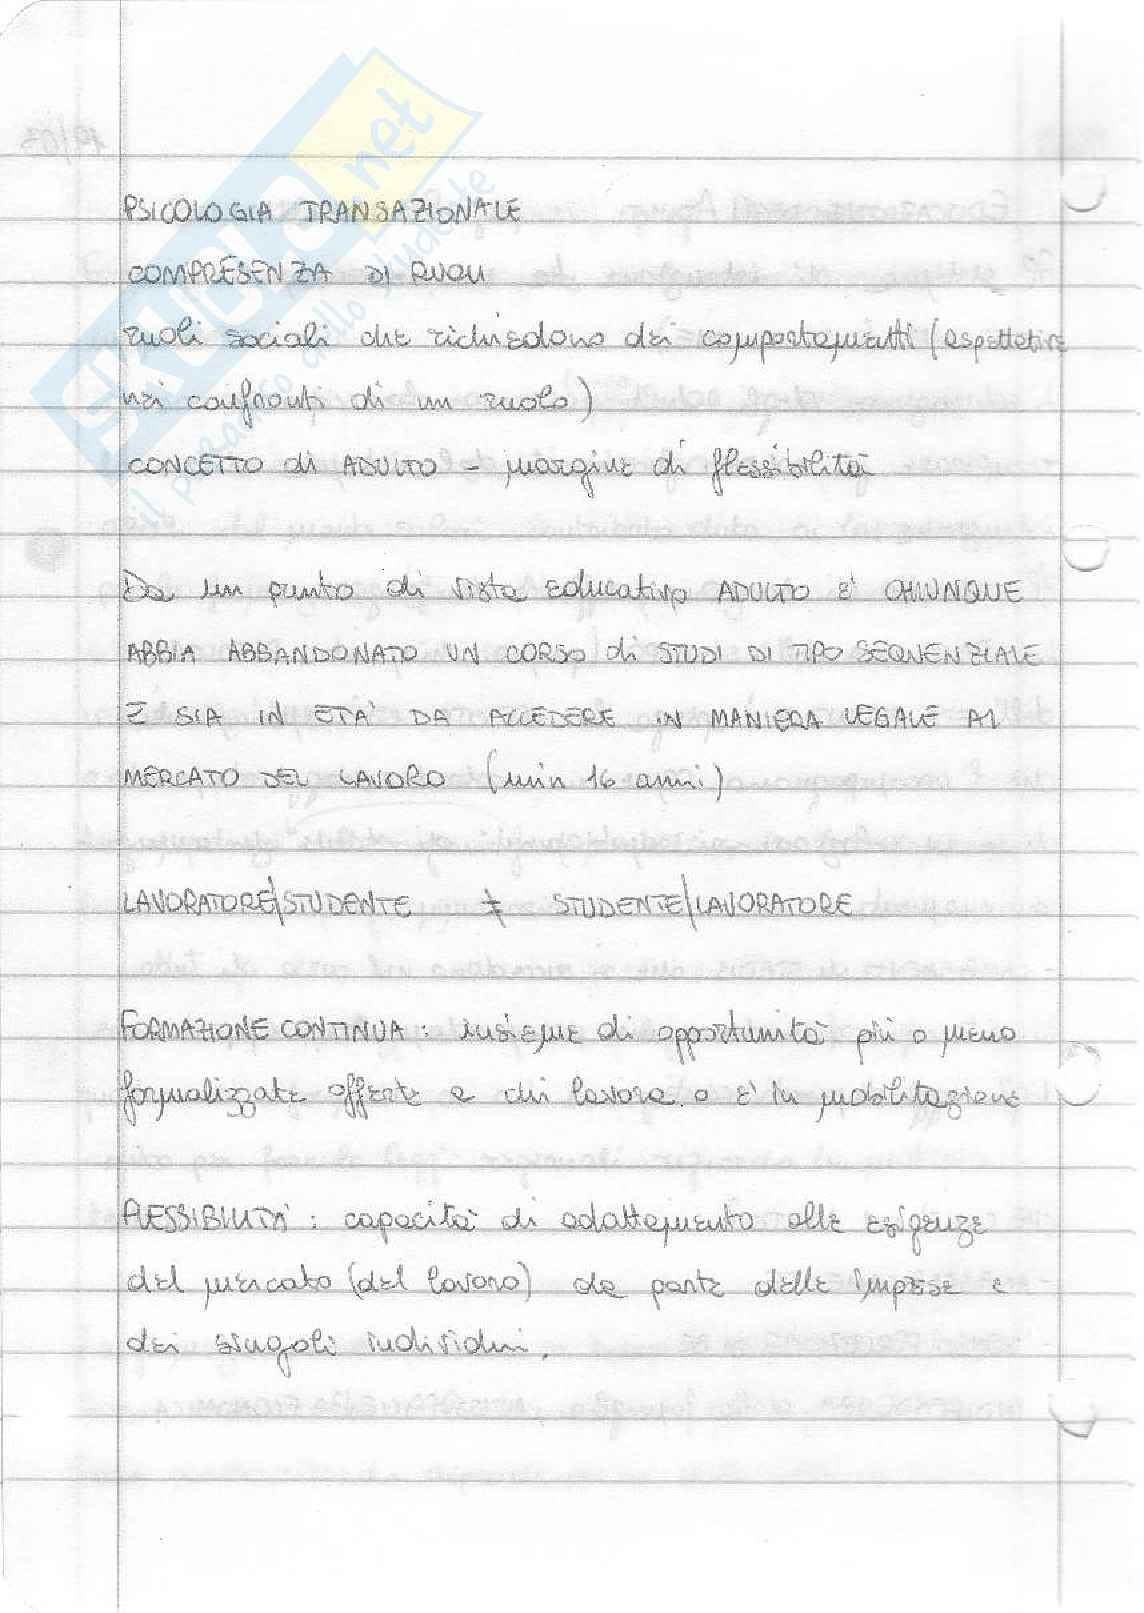 SKUOLA.net
il paradiso dello studente
PSICOLOGIA TRANSAZIONALE
COMPRESENZA DI RUOLI
ruoli sociali che richiedono dei comportamenti (aspettative
nei confronti di un ruolo)
CONCETTO di ADULTO - margine di flessibilità
Da un punto di vista educativo ADULTO E' CHIUNQUE
ABBIA ABBANDONATO UN CORSO di STUDI DI TIPO SEQUENZIALE
E SIA IN ETA' DA ACCEDERE IN MANIERA LEGALE AL
MERCATO DEL LAVORO (min 16 anni)
LAVORATORE/STUDENTE ≠ STUDENTE/LAVORATORE
FORMAZIONE CONTINUA: insieme di opportunità più o meno
formalizzate offerte a chi lavora o è in mobilitazione
FLESSIBILITA': capacità di adattamento alle esigenze
del mercato (del lavoro) da parte delle imprese e
dei singoli individui.